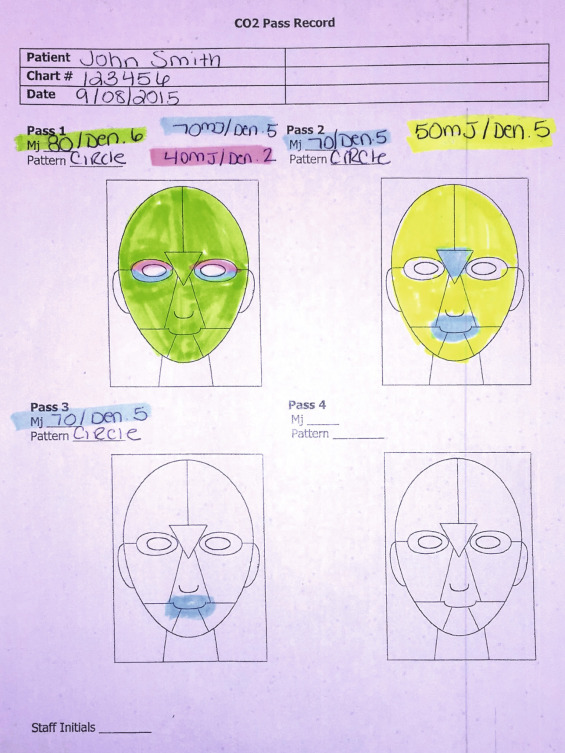 CO2 Pass Record
Patient John Smith
Chart # 123456
Date 9/08/2015
Pass 1
Mj 80/Den. 6
Pattern Circle
70mJ/Den. 5
40mJ/Den. 2
Pass 2
Mj 70/Den. 5
Pattern Circle
50mJ/Den. 5
Pass 3
Mj 70/Den. 5
Pattern Circle
Pass 4
Mj
Pattern
Staff Initials